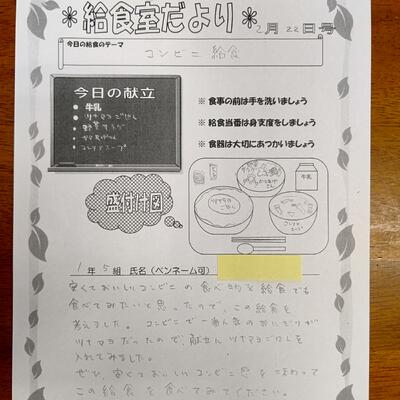 ＊給食室だより＊ 2月22日号
今日の給食のテーマ
コンビニ給食
今日の献立
● 牛乳
● ツナマヨごはん
● 野菜サラダ
● からあげさん
● コンソメスープ
※ 食事の前は手を洗いましょう
※ 給食当番は身支度をしましょう
※ 食器は大切にあつかいましょう
盛付け図
サラダ
からあげさん
牛乳
ツナマヨごはん
コンソメスープ
1年5組 氏名(ペンネーム可)
安くておいしいコンビニの食べ物を給食でも
食べてみたいと思ったので、この給食を
考えました。コンビニで一番人気のおにぎりが
ツナマヨだったので、献立にツナマヨごはんを
入れてみました。
ぜひ、安くておいしいコンビニ感を味わって
この給食を食べてみてください。